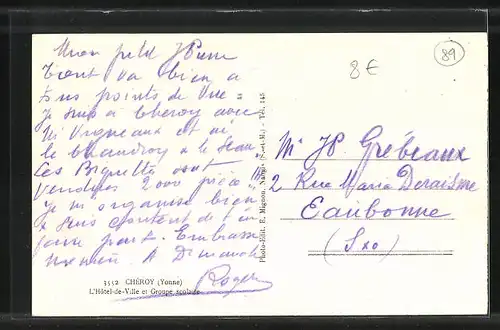 Mon petit J Pierre
Tout va bien a
tous points de vue
Je suis a Cheroy avec
Mr Vrigneaux et
le
Les Biquettes sont
vendues 2000 pièce !!!
Je m'organise bien
Je suis content de t'en
faire part. Embrasse
A Dimanche
Roger
3552 CHÉROY (Yonne)
L'Hôtel-de-Ville et Groupe scolaire
Photo-Edit. R. Mignon, (S.-et-M.) - Tél. 145
8€
89
Mr JP Grébeaux
2 Rue Maria Deraisme
Eaubonne
(Sxo)